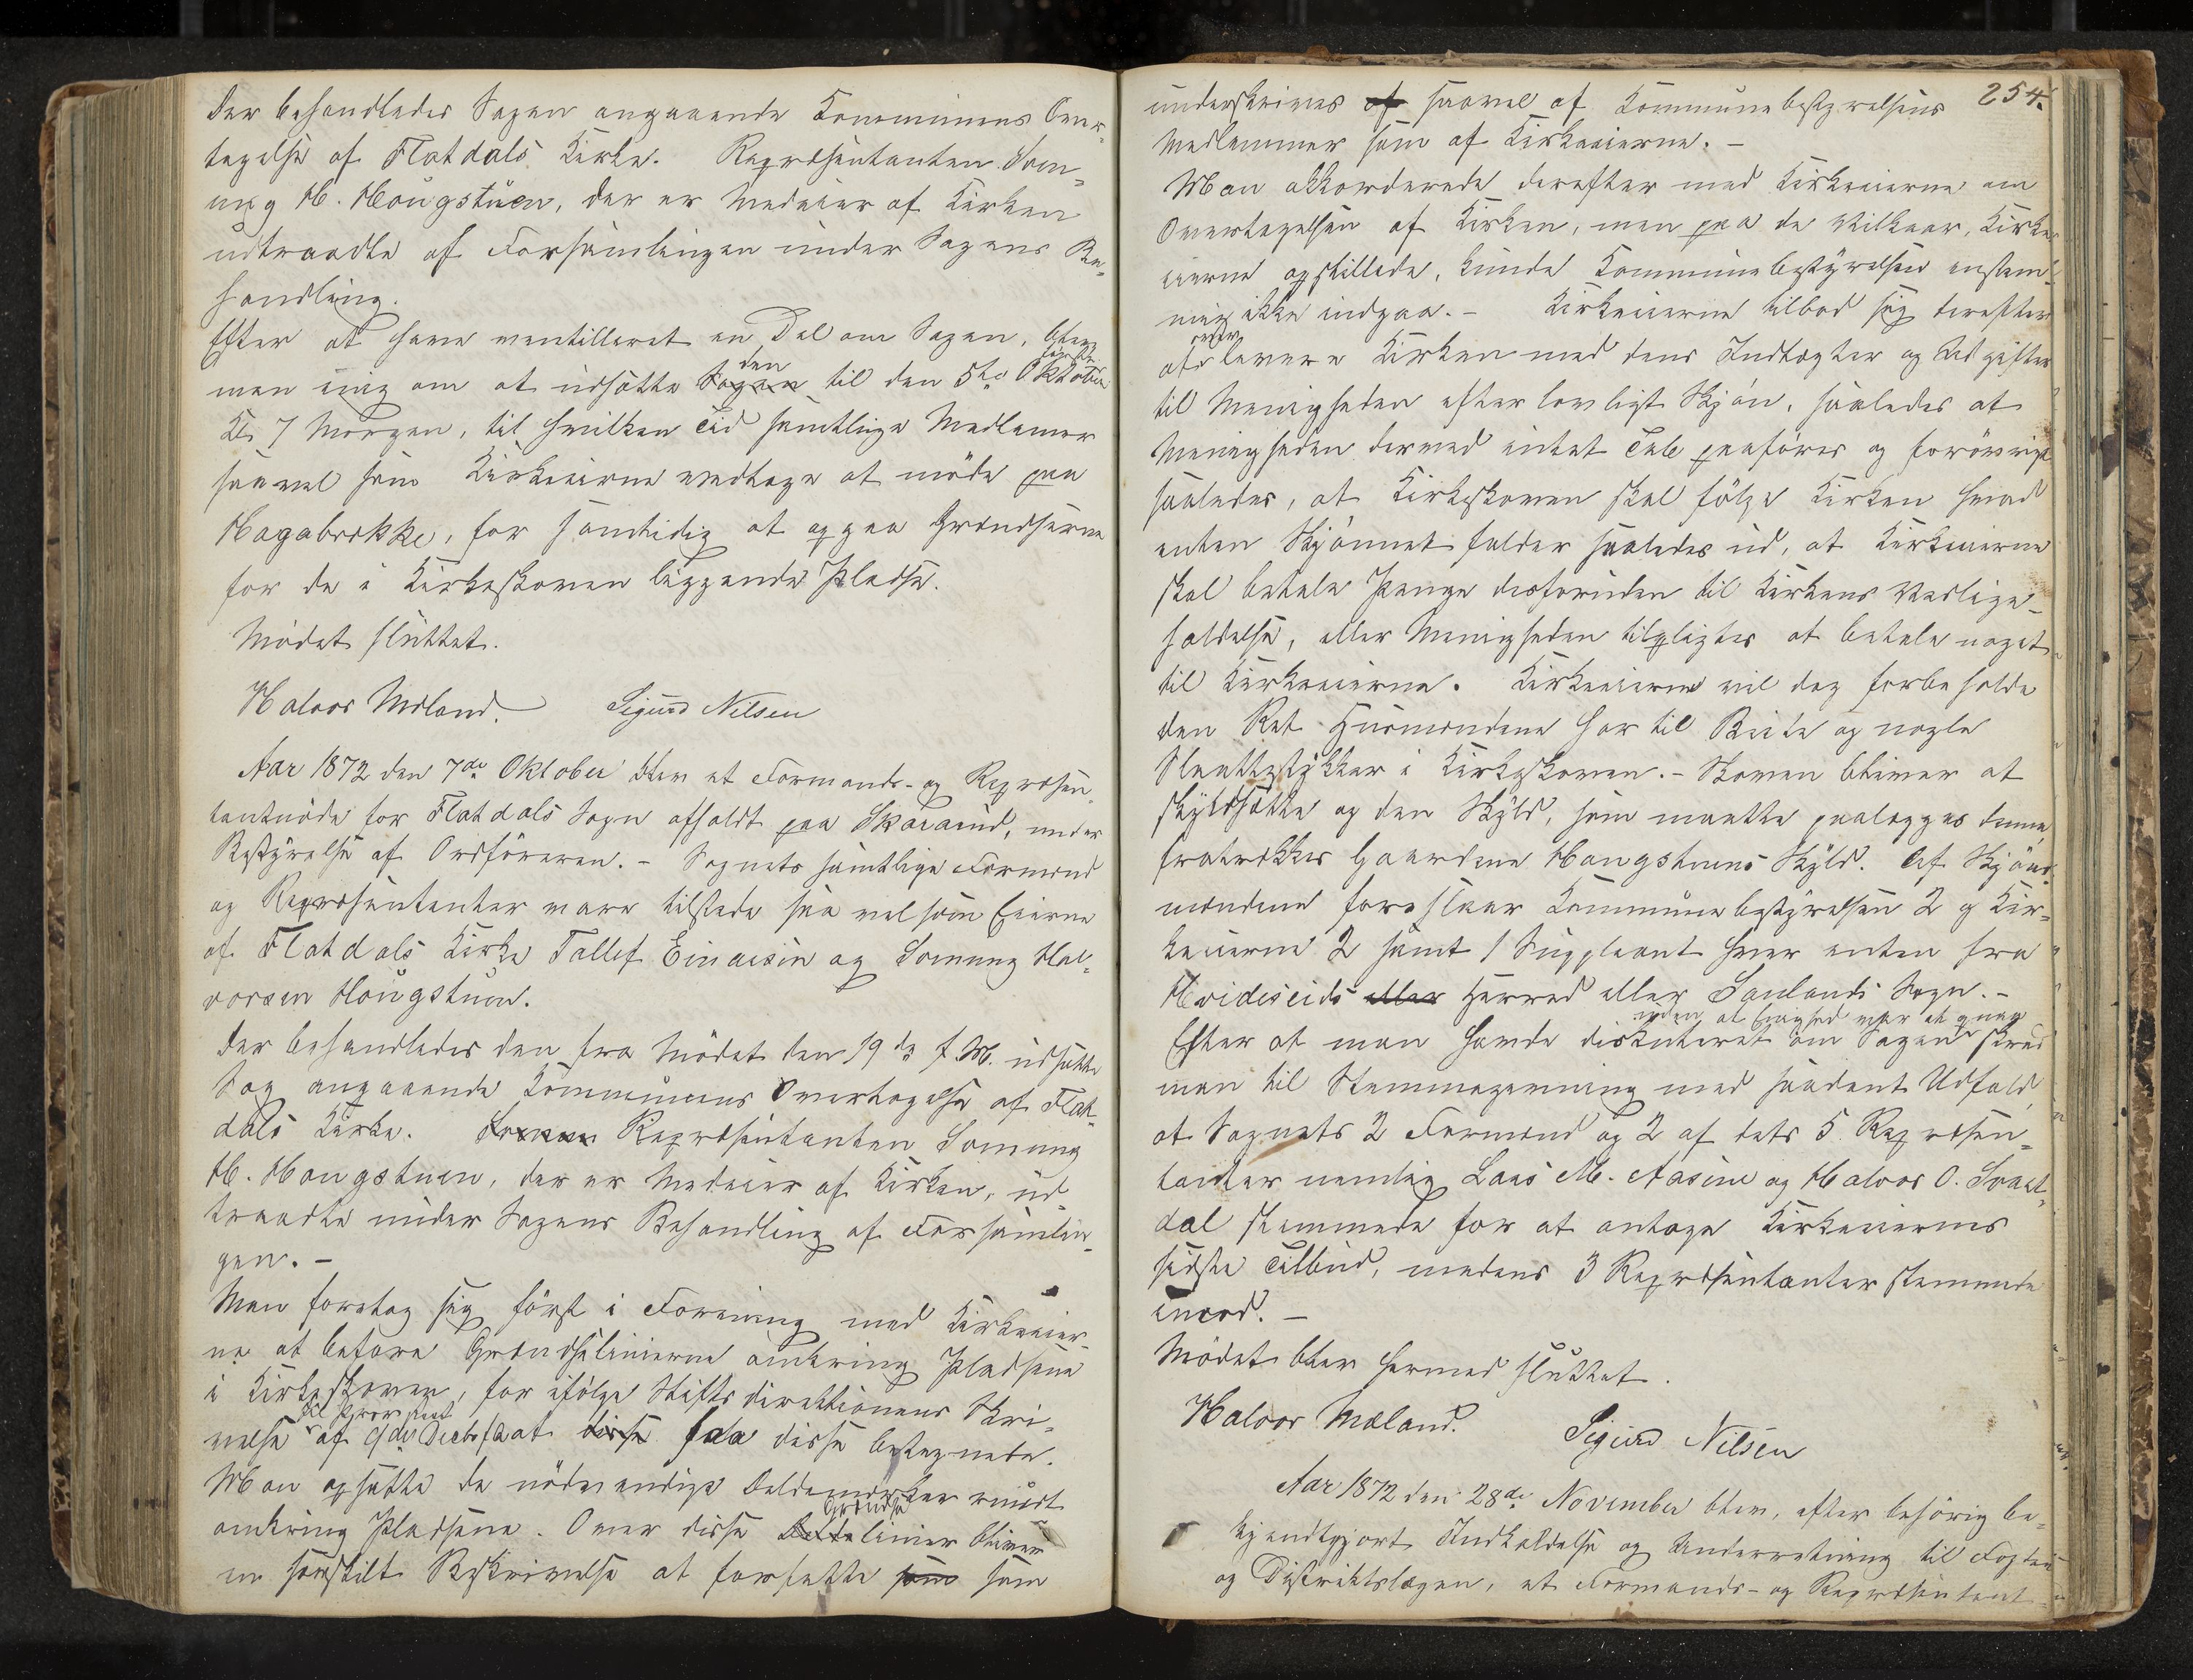 Der behandledes Sagen angaaende Kommunens Over-
tagelse af Flatdals Kirke. Repræsentanten Som-
ung H. Høugstuen, der er Medeier af Kirken
udtraadte af Forsamlingen under Sagens Be-
handling.
Efter at have ventilleret en Del om Sagen, blev
man enig om at udsætte Sagen den til den 5te Oktober
Kl. 7 Morgen, til hvilken Tid samtlige Medlemer
saavel som Kirkeeierne vedtoge at møde paa
Hagabrekke, for samtidig at opgaa Grændserne
for de i Kirkeskoven liggende Pladse.
Mødet sluttet.
Halvor Mæland. Sigurd Nilsen
Aar 1872 den 7de Oktober blev et Formands- og Repræsen-
tantmøde for Flatdals Sogn afholdt paa Skaarud, under
Bestyrelse af Ordføreren. - Sognets samtlige Formænd
og Repræsentanter vare tilstede saavel som Eierne
af Flatdals Kirke Tallef Einarsen og Somung Hal-
vorsen Høugstuen.
Der behandledes den fra Mødet den 19de f. M. udsatte
Sag angaaende Kommunens Overtagelse af Flat-
dals Kirke. Repræsentanten Somung
H. Hougstuen, der er Medeier af Kirken, ud-
traadte under Sagens Behandling af Forsamlin-
gen. -
Man foretog sig først i Forening med Kirkeeier-
ne at befare Grændselinierne omkring Pladsene
i Kirkeskoven, for ifølge Stiftsdirektionens Skri-
velse til Provsten af 9de at disse faa disse betegnede.
Man opsatte de nødvendige Deldemærker rundt
omkring Pladsene. Over disse Delde Grændse linier bliver
en særskilt Beskrivelse at forfatte som som
254.
underskrives af saavel af Kommunebestyrelsens
Medlemmer som af Kirkeeierne. -
Man akkorderede derefter med Kirkeeierne om
Overtagelsen af Kirken, men paa de Vilkaar, Kirke-
eierne opstillede, kunde Kommunebestyrelsen enstem-
mig ikke indgaa. - Kirkeeierne tilbød sig derefter
at levere Kirken med dens Indtægter og Udgifter
til Menigheden efter lovligt Skjøn, saaledes at
Menigheden dermed intet Tab paaføres og forøvrigt
saaledes, at Kirkeskoven skal følge Kirken hvad
enten Skjønnet falder saaledes ud, at Kirkeeierne
skal betale Penge desforuden til Kirkens Vedlige-
holdelse, eller Menigheden tilpligtes at betale noget
til Kirkeeierne. Kirkeeierne vil dog forbeholde
den Ret Husmændene har til Beite og nogle
Slaattestykker i Kirkeskoven. - Skoven bliver at
skyldsætte og den Skyld, som maatte paalægges denne
fratrækkes Gaardene Hougstuens Skyld. Af Skjøns-
mændene foreslaar Kommunebestyrelsen 2 og Kir-
keeierne 2 samt 1 Suppleant hver enten fra
Hvideseids eller Herred eller Sanlands Sogn. -
Efter at man havde diskuteret om Sagen uden at Enighed var at opnaa skred
man til Stemmegivning med saadant Udfald,
at Sognets 2 Formænd og 2 af dets 5 Repræsen-
tanter nemlig Laas M. Aasene og Halvor O. Svart-
dal stemmede for at antage Kirkeeiernes
sidste Tilbud, medens 3 Repræsentanter stemmede
imod. -
Mødet blev hermed sluttet.
Halvor Mæland. Sigurd Nilsen
Aar 1872 den 28de November blev, efter behørig be-
kjendtgjort Indkaldelse og Underretning til Fogden
og Distriktslægen, et Formands- og Repræsentant-